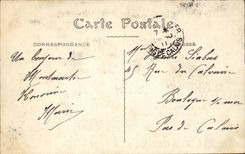 Carte Postale
CORRESPONDANCE
Un bonjour de
Montmartre
Honorine
Marie
45 Rue du Calvaire
Boulogne s/mer
Pas de Calais